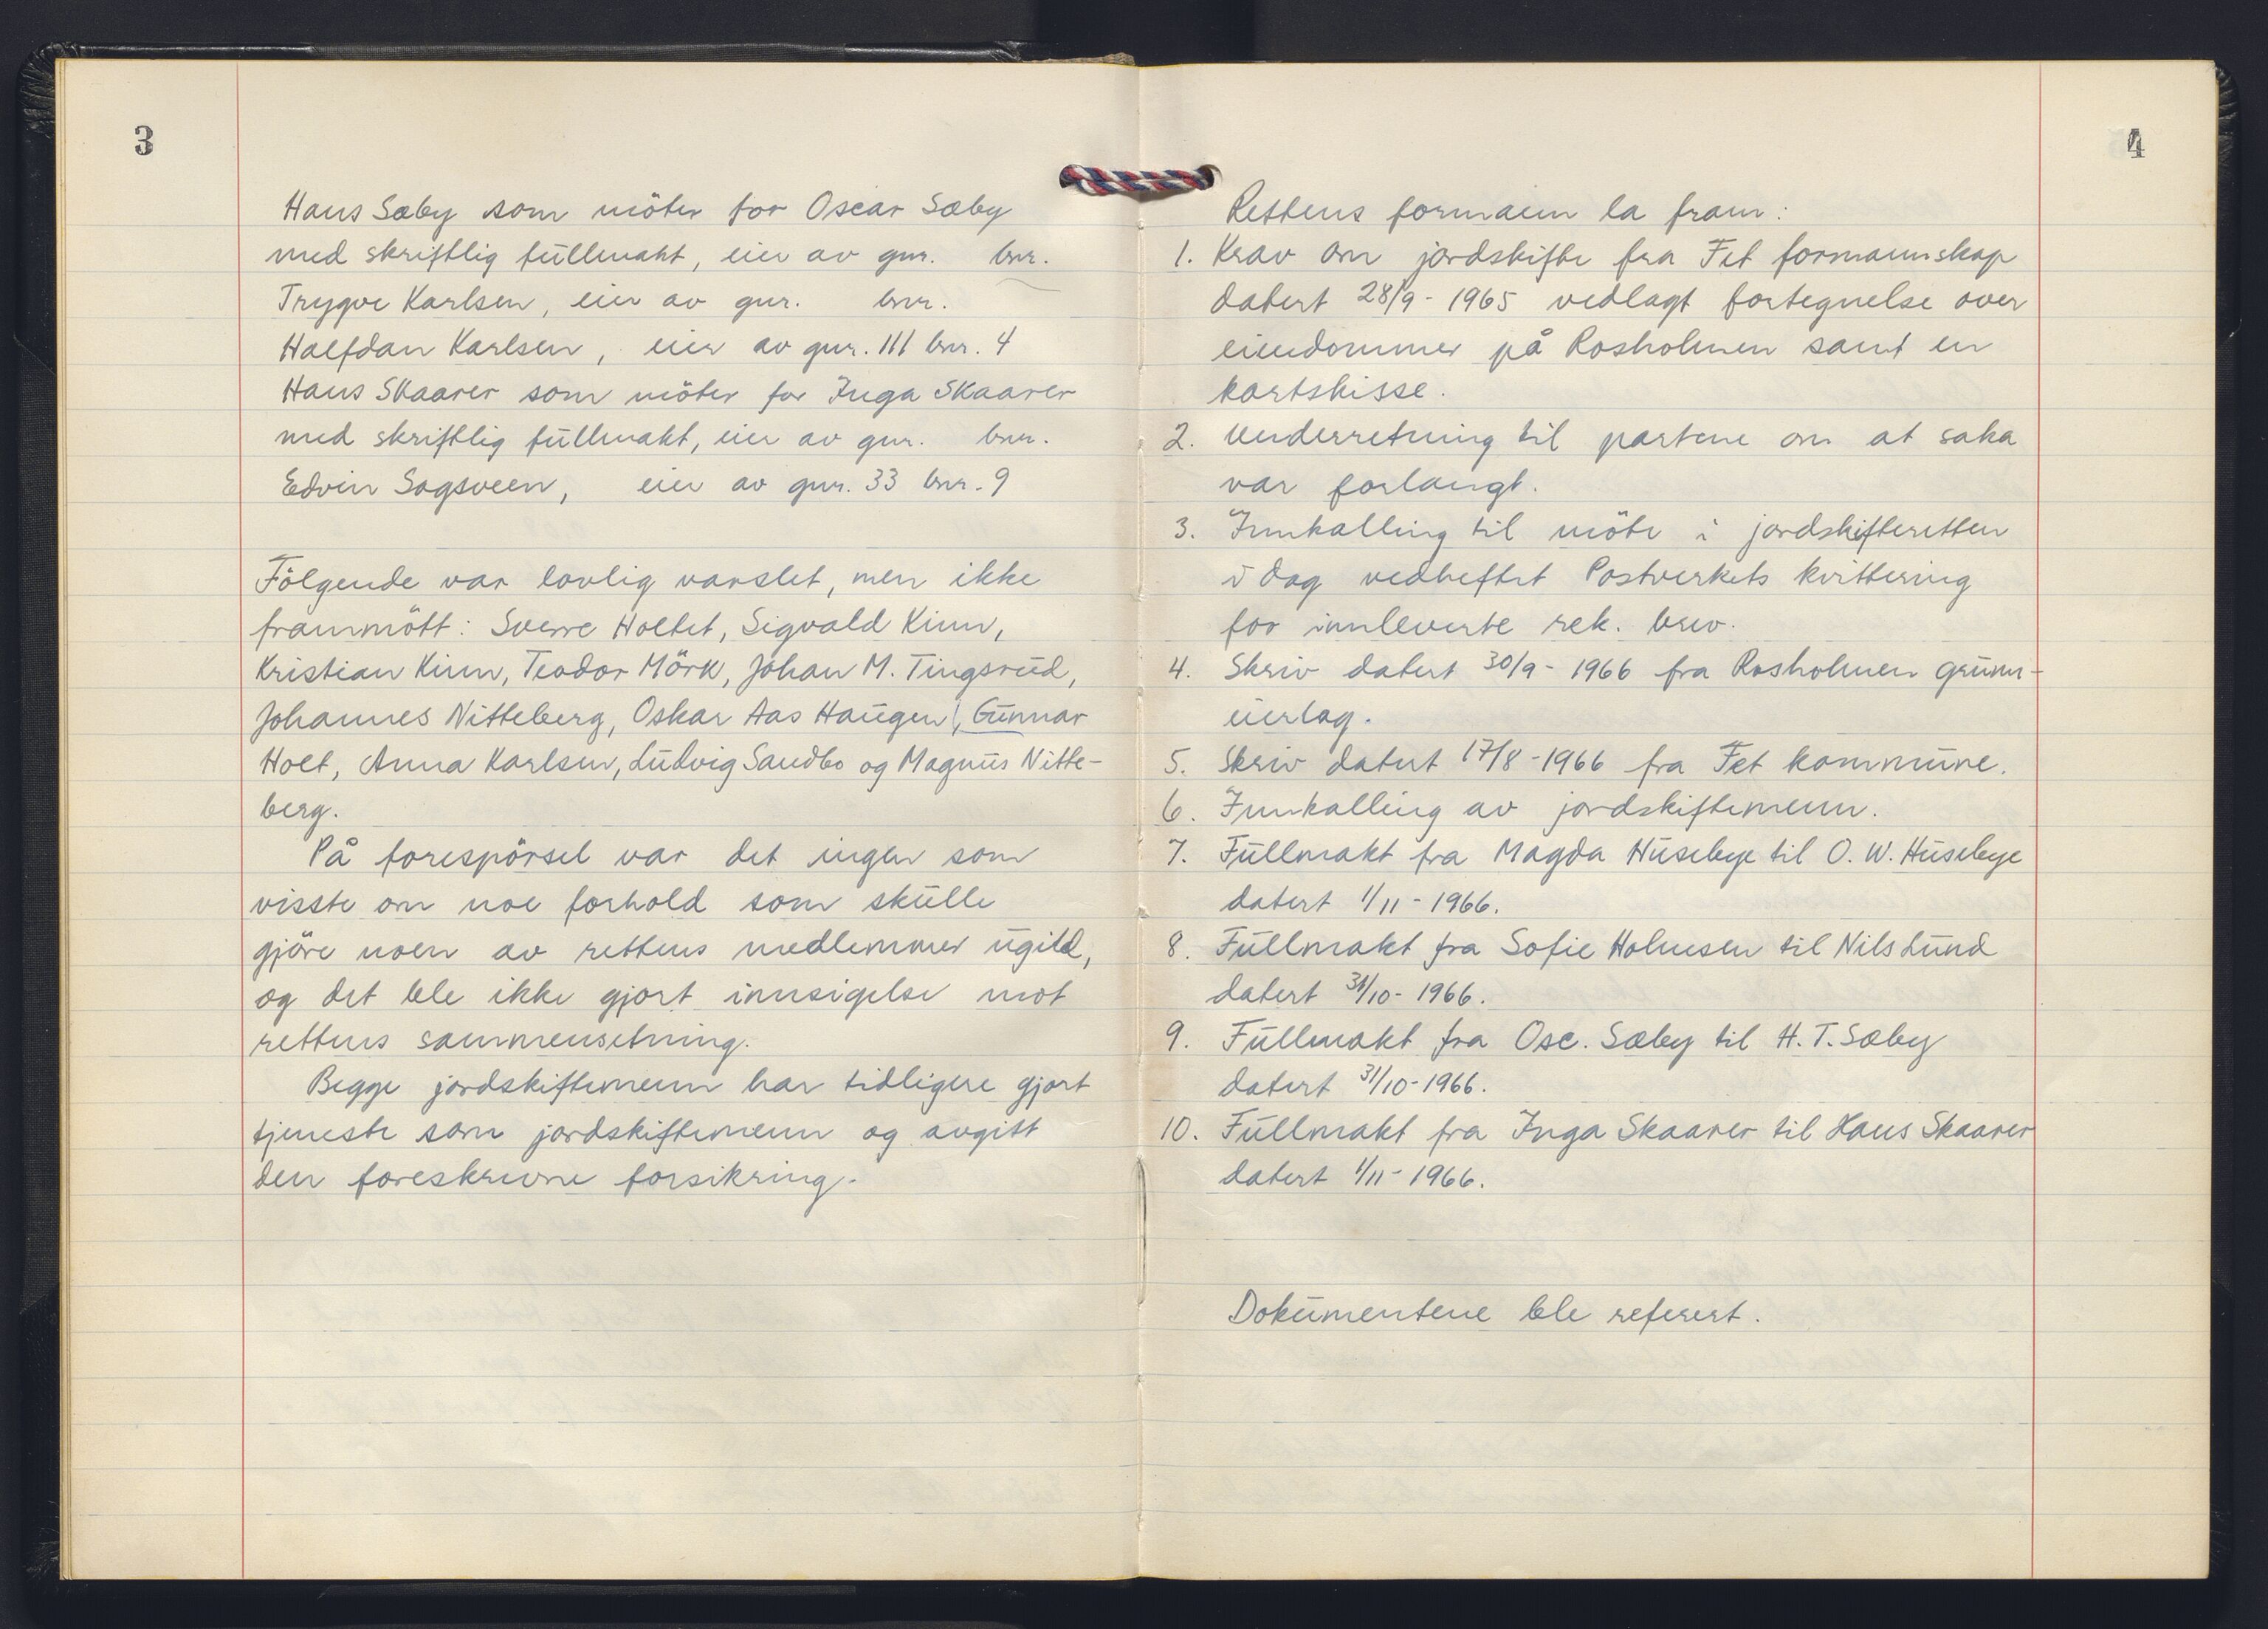 3
Hans Sæby som möter for Oscar Sæby
med skriftlig fullmakt, eier av gnr. bnr.
Trygve Karlsen, eier av gnr. bnr.
Halfdan Karlsen, eier av gnr. 111 bnr. 4
Hans Skaarer som möter for Inga Skaarer
med skriftlig fullmakt, eier av gnr. bnr.
Edvin Sogsveen, eier av gnr. 33 bnr. 9
Fölgende var lovlig varslet, men ikke
frammött: Sverre Holtet, Sigvald Kinn,
Kristian Kinn, Teodor Mörk, Johan M. Tingsrud,
Johannes Nitteberg, Oskar Aas Haugen, Gunnar
Holt, Anna Karlsen, Ludvig Sandbo og Magnus Nitte-
berg.
På forespörsel var det ingen som
visste om noe forhold som skulle
gjöre noen av rettens medlemmer ugild,
og det ble ikke gjort innsigelse mot
rettens sammensetning.
Begge jordskiftemenn har tidligere gjort
tjeneste som jordskiftemenn og avgitt
den foreskrevne forsikring.
4
Rettens formann la fram:
1. Krav om jordskifte fra Fet formannskap
datert 28/9 - 1965 vedlagt fortegnelse over
eiendommer på Rosholmen samt en
kartskisse.
2. Underretning til partene om at saka
var forlangt.
3. Innkalling til möte i jordskifteretten
i dag vedheftet Postverkets kvittering
for innleverte rek. brev.
4. Skriv datert 30/9 - 1966 fra Rosholmen grunn-
eierlag.
5. Skriv datert 17/8 - 1966 fra Fet kommune.
6. Innkalling av jordskiftemenn.
7. Fullmakt fra Magda Husebye til O. W. Husebye
datert 1/11 - 1966.
8. Fullmakt fra Sofie Holmsen til Nils Lund
datert 31/10 - 1966.
9. Fullmakt fra Osc. Sæby til H. T. Sæby
datert 31/10 - 1966.
10. Fullmakt fra Inga Skaarer til Hans Skaarer
datert 1/11 - 1966.
Dokumentene ble referert.